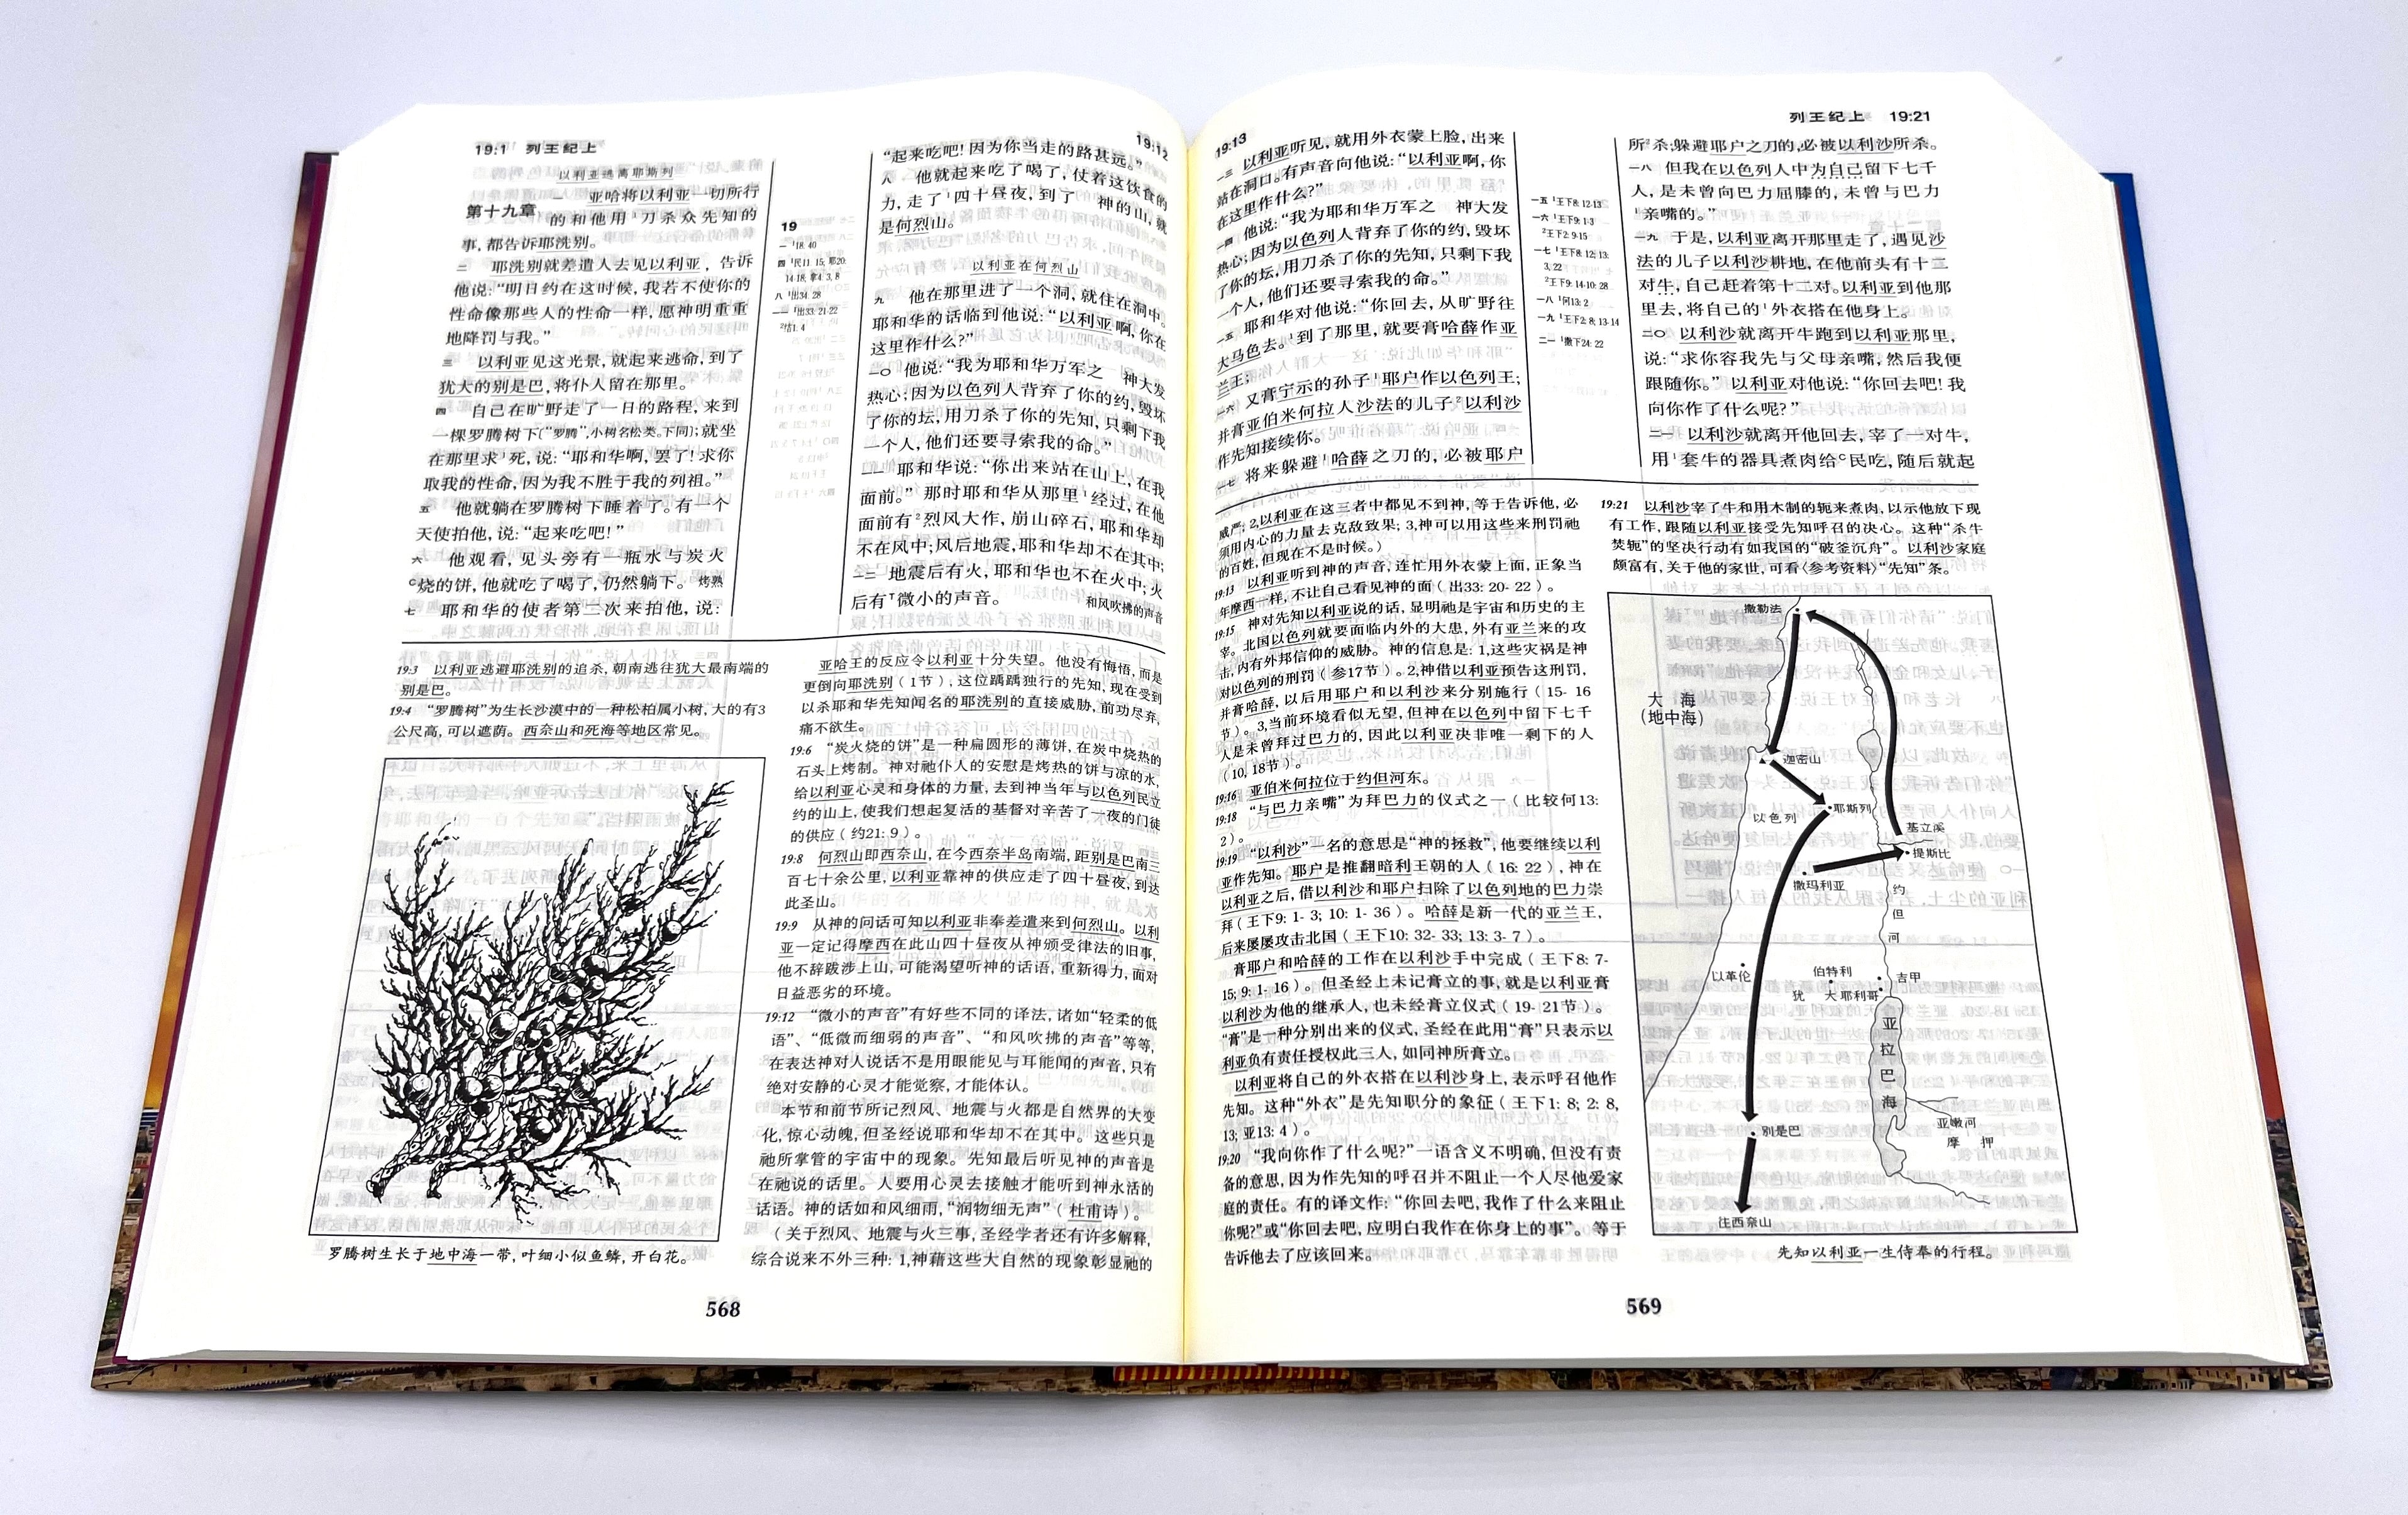 19:1 列王纪上
以利亚逃离耶斯列
第十九章
一 亚哈将以利亚一切所行
的和他用¹刀杀众先知的
事,都告诉耶洗别。
二 耶洗别就差遣人去见以利亚,告诉
他说:“明日约在这时候,我若不使你的
性命像那些人的性命一样,愿神明重重
地降罚与我。”
三 以利亚见这光景,就起来逃命,到了
犹大的别是巴,将仆人留在那里。
四 自己在旷野走了一日的路程,来到
一棵罗腾树下(“罗腾”,小树名松类。下同);就坐
在那里求¹死,说:“耶和华啊,罢了!求你
取我的性命,因为我不胜于我的列祖。”
五 他就躺在罗腾树下睡着了。有一个
天使拍他,说:“起来吃吧!”
六 他观看,见头旁有一瓶水与炭火
ᶜ烧的饼,他就吃了喝了,仍然躺下。 烤熟
七 耶和华的使者第二次来拍他,说:
19
一 ¹18:40
四 ¹民11:15; 耶20:
14-18; 拿4:3, 8
八 ¹出34:28
一一 ¹出33:21-22
²结1:4
19:12
“起来吃吧!因为你当走的路甚远。”
八 他就起来吃了喝了,仗着这饮食的
力,走了¹四十昼夜,到了 神的山,就
是何烈山。
以利亚在何烈山
九 他在那里进了一个洞,就住在洞中。
耶和华的话临到他说:“以利亚啊,你在
这里作什么?”
一〇 他说:“我为耶和华万军之 神大发
热心;因为以色列人背弃了你的约,毁坏
了你的坛,用刀杀了你的先知,只剩下我
一个人,他们还要寻索我的命。”
一一 耶和华说:“你出来站在山上,在我
面前。”那时耶和华从那里¹经过,在他
面前有²烈风大作,崩山碎石,耶和华却
不在风中;风后地震,耶和华却不在其中;
一二 地震后有火,耶和华也不在火中;火
后有ᵀ微小的声音。 和风吹拂的声音
19:3 以利亚逃避耶洗别的追杀,朝南逃往犹大最南端的
别是巴。
19:4 “罗腾树”为生长沙漠中的一种松柏属小树,大的有3
公尺高,可以遮荫。西奈山和死海等地区常见。
罗腾树生长于地中海一带,叶细小似鱼鳞,开白花。
亚哈王的反应令以利亚十分失望。他没有悔悟,而是
更倒向耶洗别(1节),这位踽踽独行的先知,现在受到
以杀耶和华先知闻名的耶洗别的直接威胁,前功尽弃,
痛不欲生。
19:6 “炭火烧的饼”是一种扁圆形的薄饼,在炭中烧热的
石头上烤制。神对祂仆人的安慰是烤热的饼与凉的水,
给以利亚心灵和身体的力量,去到神当年与以色列民立
约的山上,使我们想起复活的基督对辛苦了一夜的门徒
的供应(约21:9)。
19:8 何烈山即西奈山,在今西奈半岛南端,距别是巴南三
百七十余公里,以利亚靠神的供应走了四十昼夜,到达
此圣山。
19:9 从神的问话可知以利亚非奉差遣来到何烈山。以利
亚一定记得摩西在此山四十昼夜从神颁受律法的旧事,
他不辞跋涉上山,可能渴望听神的话语,重新得力,面对
日益恶劣的环境。
19:12 “微小的声音”有好些不同的译法,诸如“轻柔的低
语”、“低微而细弱的声音”、“和风吹拂的声音”等等,
在表达神对人说话不是用眼能见与耳能闻的声音,只有
绝对安静的心灵才能觉察,才能体认。
本节和前节所记烈风、地震与火都是自然界的大变
化,惊心动魄,但圣经说耶和华却不在其中。这些只是
祂所掌管的宇宙中的现象。先知最后听见神的声音是
在祂说的话里。人要用心灵去接触才能听到神永活的
话语。神的话如和风细雨,“润物细无声”(杜甫诗)。
(关于烈风、地震与火三事,圣经学者还有许多解释,
综合说来不外三种:1,神藉这些大自然的现象彰显祂的
568
19:13
一三 以利亚听见,就用外衣蒙上脸,出来
站在洞口。有声音向他说:“以利亚啊,你
在这里作什么?”
一四 他说:“我为耶和华万军之 神大发
热心;因为以色列人背弃了你的约,毁坏
了你的坛,用刀杀了你的先知,只剩下我
一个人,他们还要寻索我的命。”
一五 耶和华对他说:“你回去,从旷野往
大马色去。¹到了那里,就要膏哈薛作亚
兰王;
一六 又膏宁示的孙子¹耶户作以色列王;
并膏亚伯米何拉人沙法的儿子²以利沙
作先知接续你。
一七 将来躲避¹哈薛之刀的,必被耶户
一五 ¹王下8:12-13
一六 ¹王下9:1-3
²王下2:9-15
一七 ¹王下8:12; 13:
3, 22
²王下9:14-10:28
一八 ¹何13:2
一九 ¹王下2:8; 13-14
二一 ¹撒下24:22
列王纪上 19:21
所²杀;躲避耶户之刀的,必被以利沙所杀。
一八 但我在以色列人中为自己留下七千
人,是未曾向巴力屈膝的,未曾与巴力
¹亲嘴的。”
一九 于是,以利亚离开那里走了,遇见沙
法的儿子以利沙耕地,在他前头有十二
对牛,自己赶着第十二对。以利亚到他那
里去,将自己的¹外衣搭在他身上。
二〇 以利沙就离开牛跑到以利亚那里,
说:“求你容我先与父母亲嘴,然后我便
跟随你。”以利亚对他说:“你回去吧!我
向你作了什么呢?”
二一 以利沙就离开他回去,宰了一对牛,
用¹套牛的器具煮肉给ᶜ民吃,随后就起
威严;2,以利亚在这三者中都见不到神,等于告诉他,必
须用内心的力量去克敌致果;3,神可以用这些来刑罚祂
的百姓,但现在不是时候。)
19:13 以利亚听到神的声音,连忙用外衣蒙上面,正象当
年摩西一样,不让自己看见神的面(出33:20-22)。
19:15 神对先知以利亚说的话,显明祂是宇宙和历史的主
宰。北国以色列就要面临内外的大患,外有亚兰来的攻
击,内有外邦信仰的威胁。神的信息是:1,这些灾祸是神
对以色列的刑罚(参17节)。2,神借以利亚预告这刑罚,
并膏哈薛,以后用耶户和以利沙来分别施行(15-16
节)。3,当前环境看似无望,但神在以色列中留下七千
人是未曾拜过巴力的,因此以利亚决非唯一剩下的人
(10, 18节)。
19:16 亚伯米何拉位于约但河东。
19:18 “与巴力亲嘴”为拜巴力的仪式之一(比较何13:
2)。
19:19 “以利沙”一名的意思是“神的拯救”,他要继续以利
亚作先知。耶户是推翻暗利王朝的人(16:22),神在
以利亚之后,借以利沙和耶户扫除了以色列地的巴力崇
拜(王下9:1-3; 10:1-36)。哈薛是新一代的亚兰王,
后来屡屡攻击北国(王下10:32-33; 13:3-7)。
膏耶户和哈薛的工作在以利沙手中完成(王下8:7-
15; 9:1-16)。但圣经上未记膏立的事,就是以利亚膏
以利沙为他的继承人,也未经膏立仪式(19-21节)。
“膏”是一种分别出来的仪式,圣经在此用“膏”只表示以
利亚负有责任授权此三人,如同神所膏立。
以利亚将自己的外衣搭在以利沙身上,表示呼召他作
先知。这种“外衣”是先知职分的象征(王下1:8; 2:8,
13; 亚13:4)。
19:20 “我向你作了什么呢?”一语含义不明确,但没有责
备的意思,因为作先知的呼召并不阻止一个人尽他爱家
庭的责任。有的译文作:“你回去吧,我作了什么来阻止
你呢?”或“你回去吧,应明白我作在你身上的事”。等于
告诉他去了应该回来。
19:21 以利沙宰了牛和用木制的轭来煮肉,以示他放下现
有工作,跟随以利亚接受先知呼召的决心。这种“杀牛
焚轭”的坚决行动有如我国的“破釜沉舟”。以利沙家庭
颇富有,关于他的家世,可看《参考资料》“先知”条。
撒勒法
大 海
(地中海)
迦密山
耶斯列
以色列
基立溪
提斯比
撒玛利亚
约但河
以革伦
伯特利
吉甲
犹 大
耶利哥
亚拉巴海
亚嫩河
摩 押
别是巴
往西奈山
先知以利亚一生侍奉的行程。
569